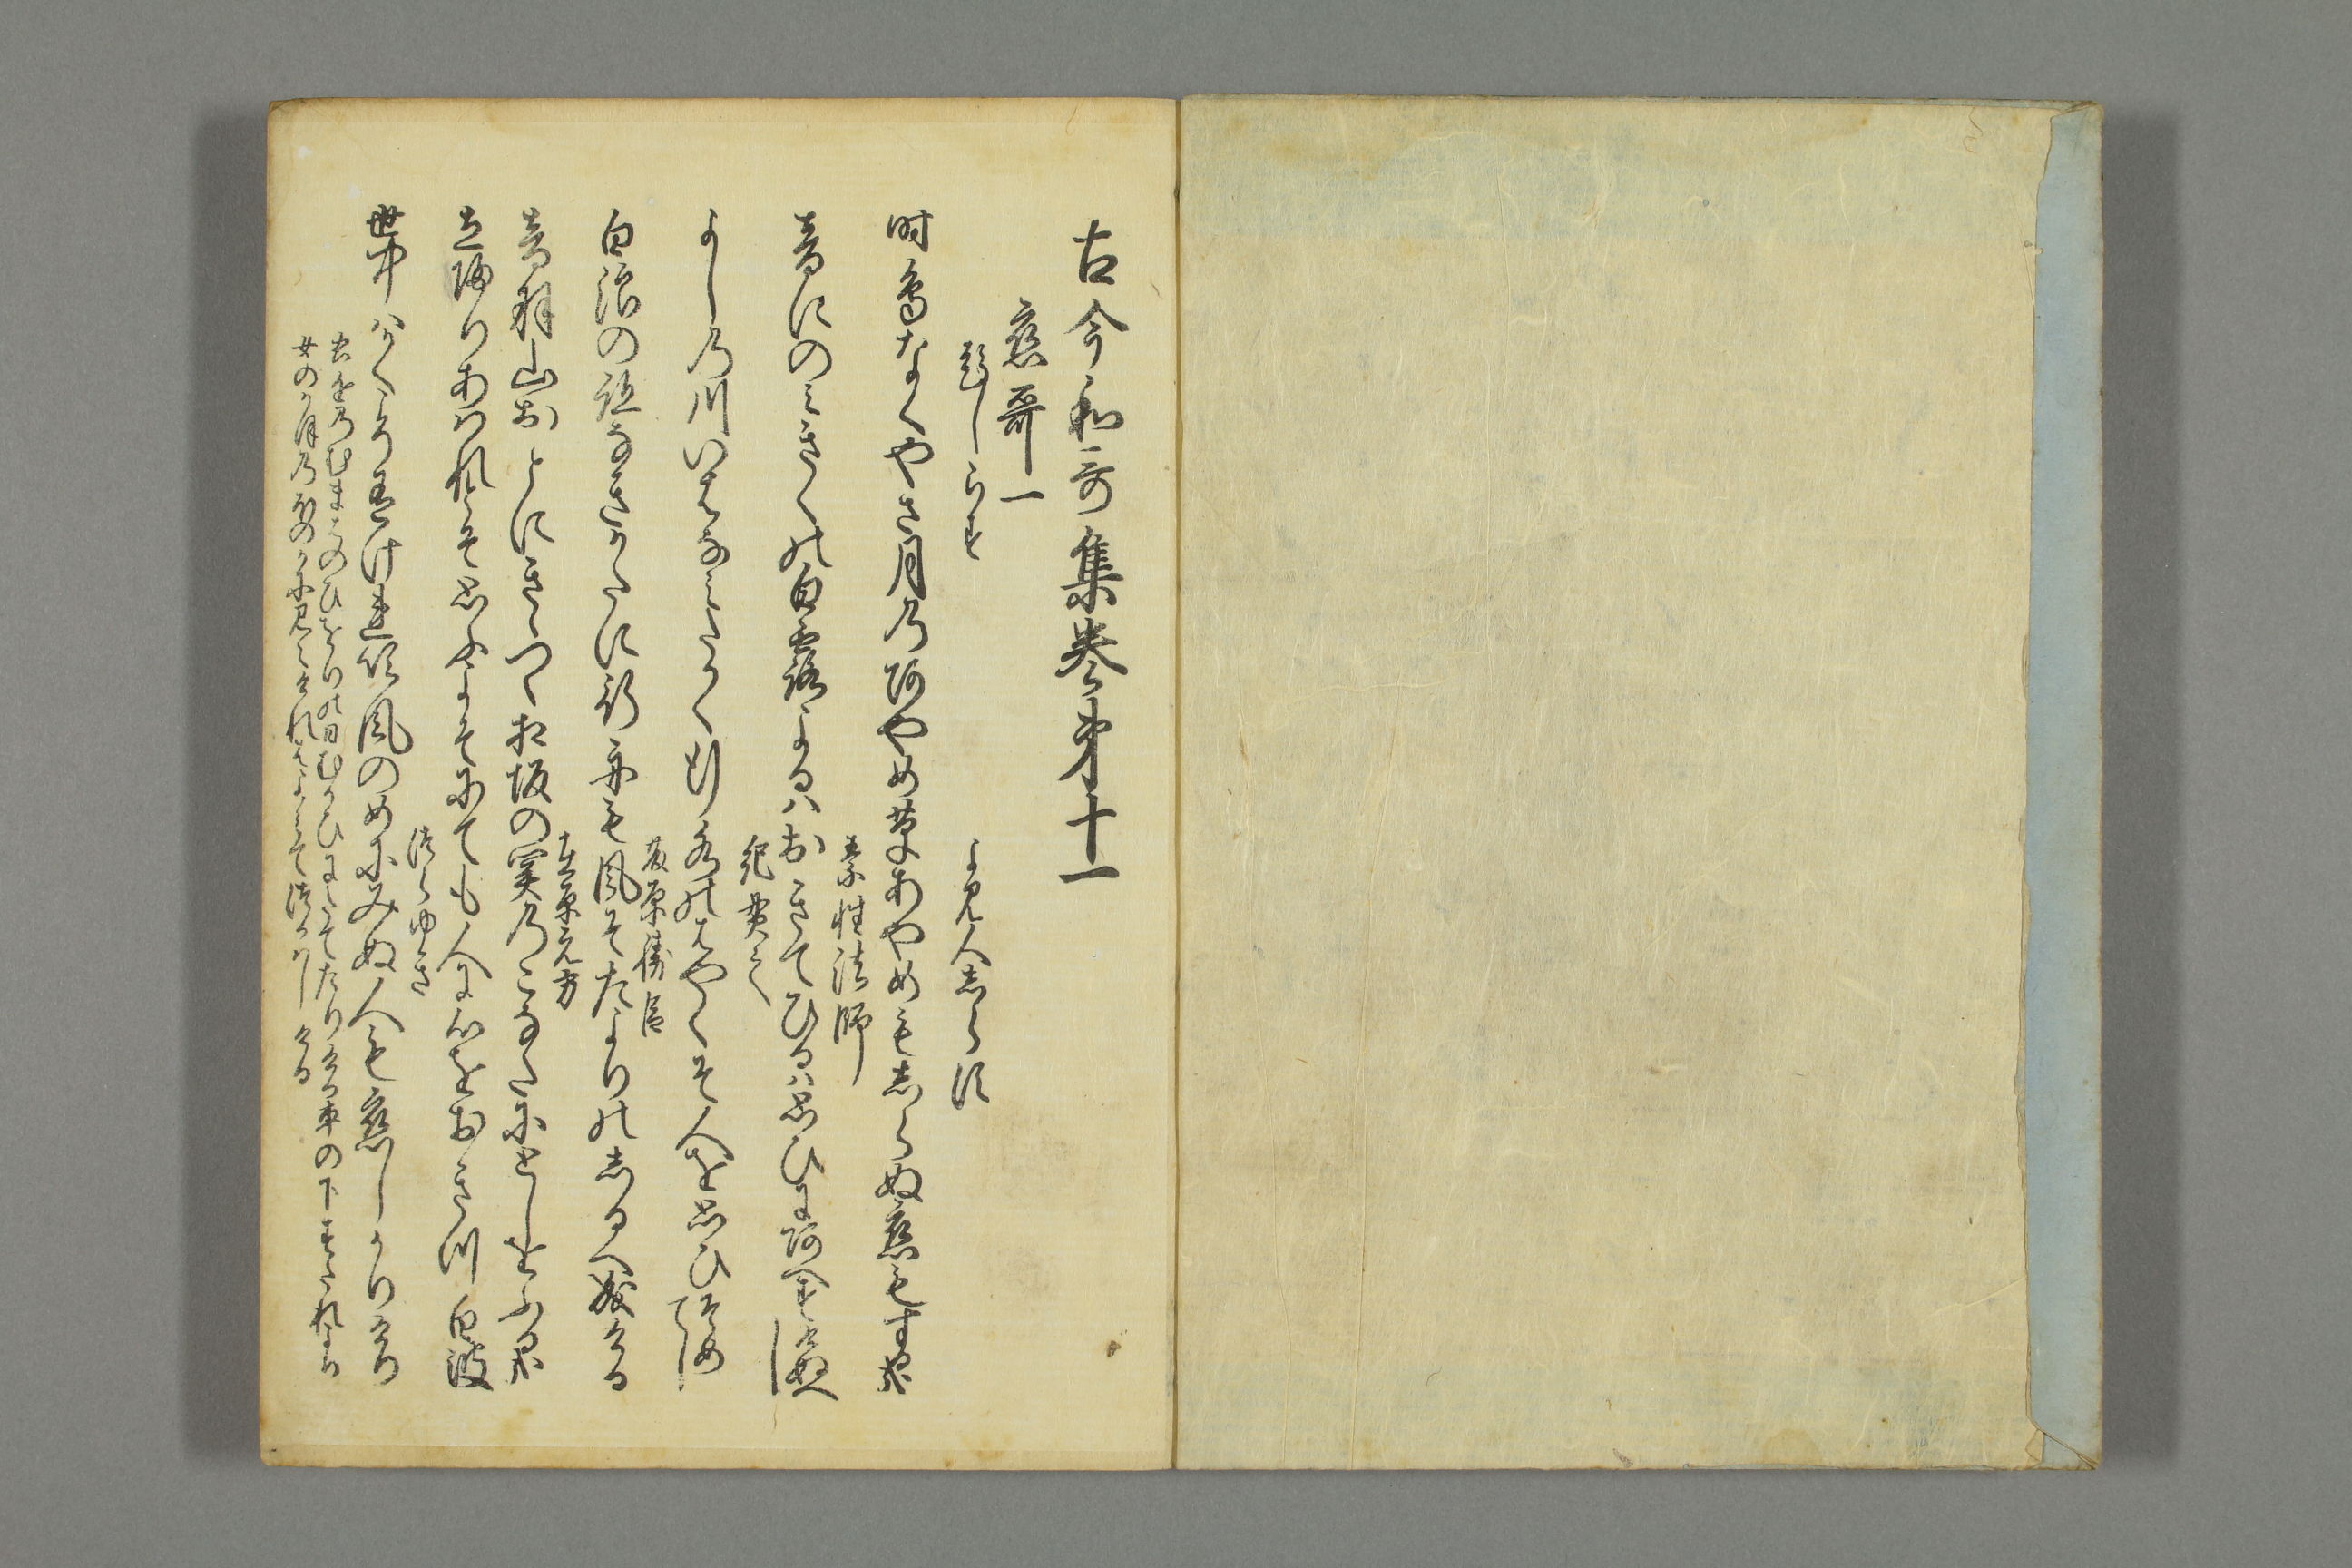 古今和哥集巻第十一
恋哥一
題しらす
よみ人しらす
時鳥なくやさ月のあやめ草あやめもしらぬ恋もする哉
素性法師
音にのみきくの白露よるハおきてひるハ思ひにあへすけぬへし
紀貫之
よしの川いはなみたかく行水のはやくそ人を思ひそめてし
藤原勝臣
白浪の跡なきかたに行舟も風そたよりのしるへ成ける
在原元方
音羽山おとにきゝつゝ相坂の関のこなたにとしをふる哉
立帰りあはれとそ思ふよそにても人に心をおきつ白波
つらゆき
世中ハかくこそ有けれ吹風のめにみぬ人も恋しかりけり
右近のむまはのひをりの日むかひにたてたりける車の下すたれより
女のかほのほのかに見えけれはよみてつかハしける